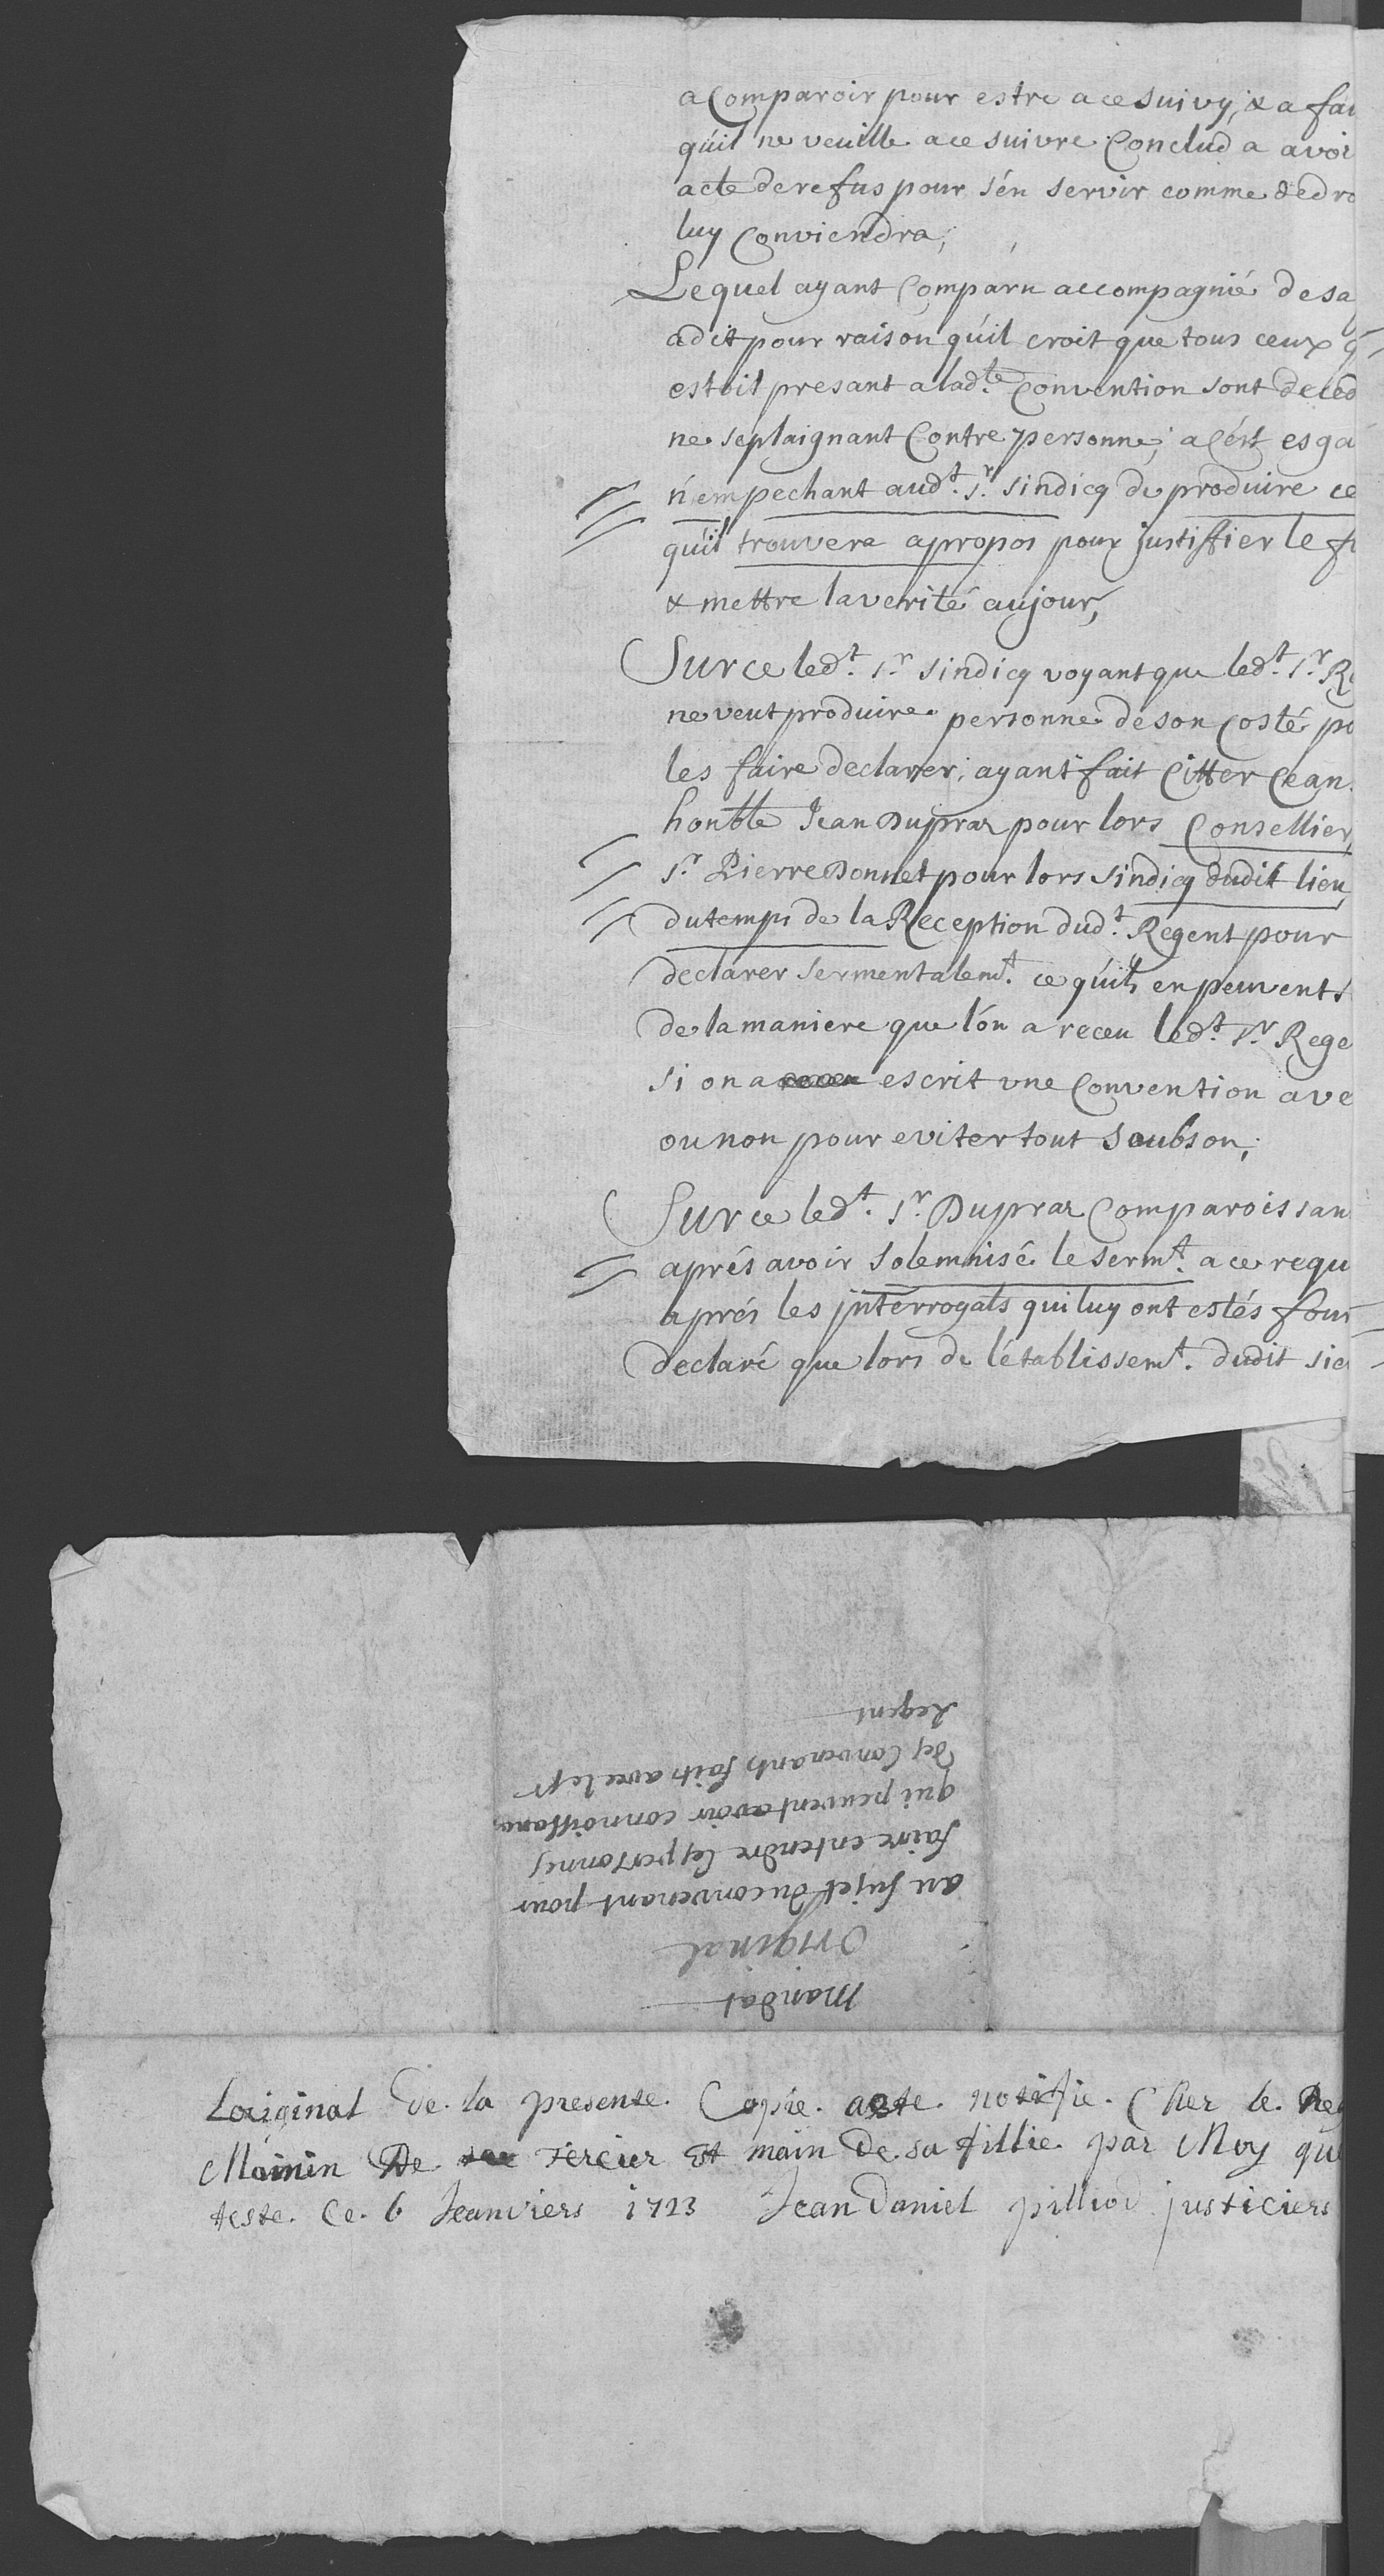 a Comparoir pour estre a ce suivy, & a fau
qu'il ne veuille a ce suivre Conclud a avoir
acte de refus pour s'én servir comme de dro
luy Conviendra;
Lequel ayant Comparu accompagnié de sa
a dit pour raison qu'il croit que tous ceux q
estoit presant a lad.te Convention sont deced
ne se plaignant Contre personne; a Cést esga
n'empechant aud.t s.r sindicq de produire ce
qu'il trouvera apropos pour justiffier le f
& mettre la verité au jour,
Sur ce led.t s.r sindicq voyant que led.t s.r Re
ne veut produire personne de son Costé po
les faire declarer; ayant fait Citter Cean
honble Jean Dupraz pour lors Consellier,
s.r Pierre Donnet pour lors sindicq dudit lieu
du temps de la Reception dud.t Regent pour
declarer sermentalem.t ce qu'ils en peuvent s
de la maniere que l'ón a receu led.t s.r Rege
si on a escrit une Convention ave
ou non pour eviter tout soubson;
Sur ce led.t s.r Dupraz Comparoissan
aprés avoir solemnisé le serm.t a ce requ
aprés les jnterrogats qui luy ont estés four
declaré que lors de l'établissem.t dudit sie
Mandat
Original
au sujet du convenant pour
faire entendre les personnes
qui peuvent avoir connoissance
des Convenants faits avec le sr
Regent
Loriginal de la presente Copie a este notifie Cher le Reg
Mainin De Tercier Et main de sa fillie par Moy qui
teste Ce 6 Jeanviers 1723 Jean Daniel pilliod justiciers